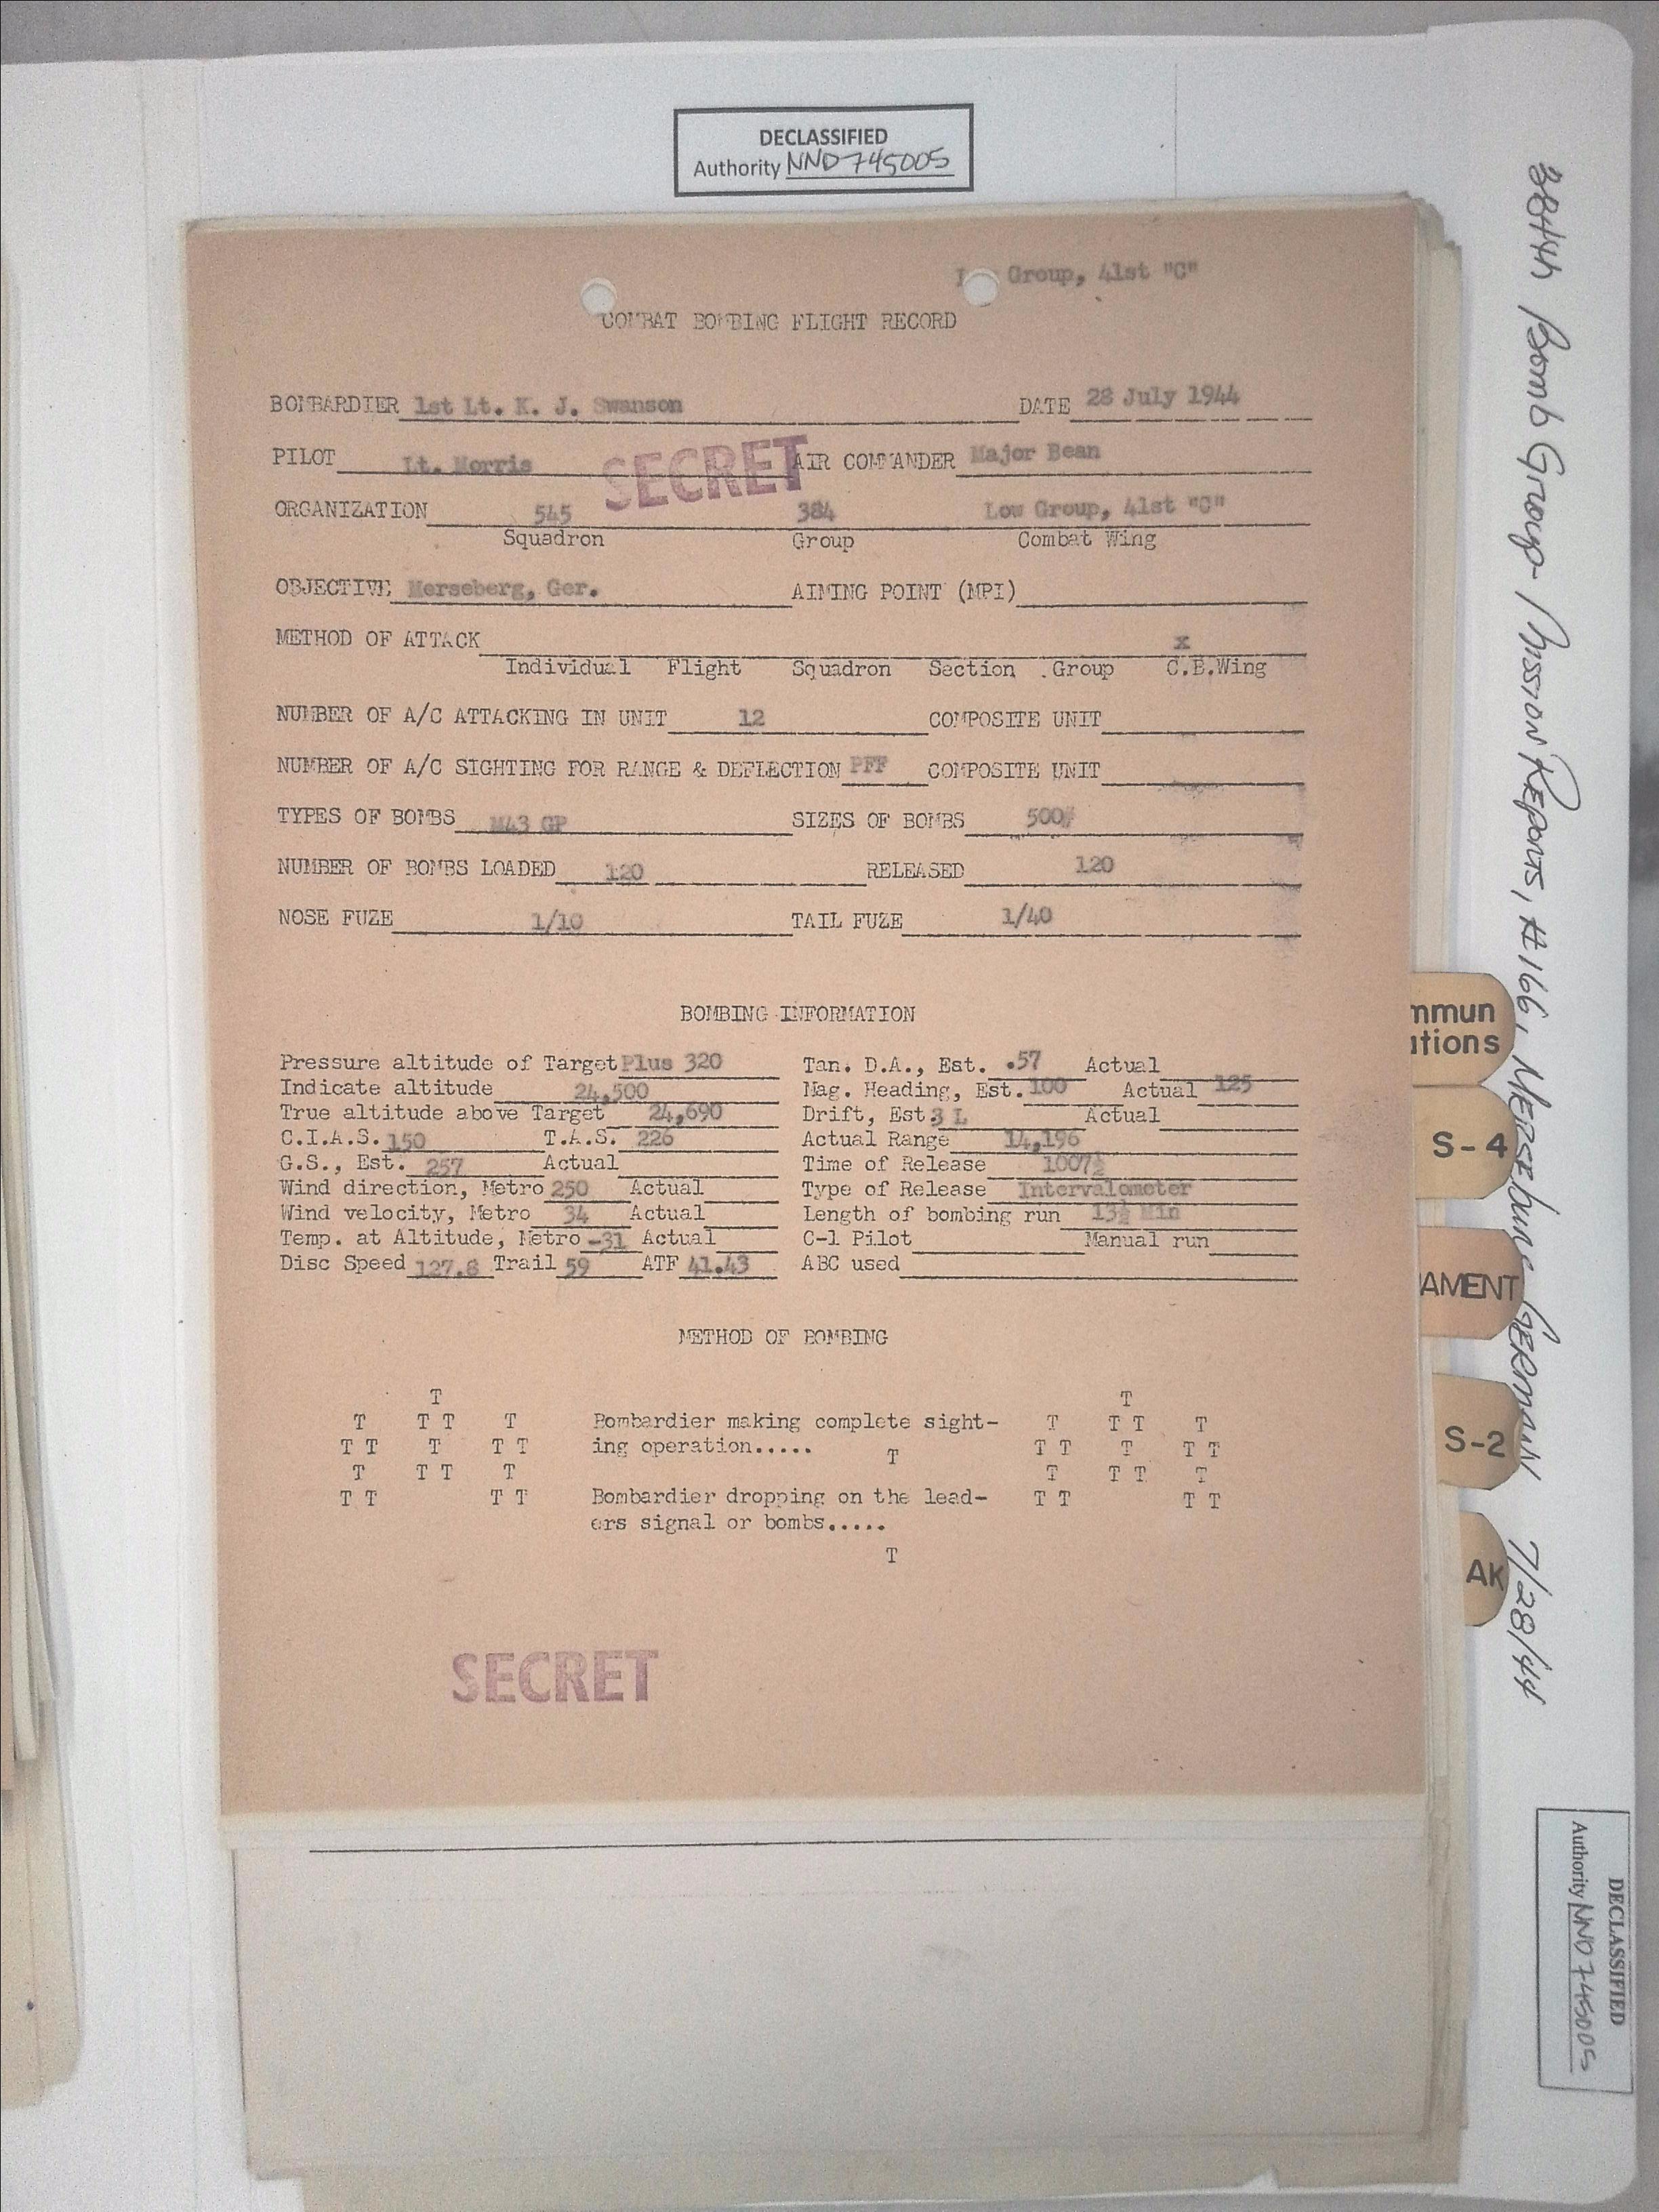 DECLASSIFIED
Authority NND 745005
Group, 41st "C"
COMBAT BOMBING FLIGHT RECORD
BOMBARDIER 1st Lt. K. J. Swanson DATE 28 July 1944
PILOT Lt. Morris AIR COMMANDER Major Bean
SECRET
ORGANIZATION 545 384 Low Group, 41st "C"
Squadron Group Combat Wing
OBJECTIVE Merseberg, Ger. AIMING POINT (MPI)
METHOD OF ATTACK x
Individual Flight Squadron Section Group C.B.Wing
NUMBER OF A/C ATTACKING IN UNIT 12 COMPOSITE UNIT
NUMBER OF A/C SIGHTING FOR RANGE & DEFLECTION PFF COMPOSITE UNIT
TYPES OF BOMBS M43 GP SIZES OF BOMBS 500#
NUMBER OF BOMBS LOADED 120 RELEASED 120
NOSE FUZE 1/10 TAIL FUZE 1/40
BOMBING INFORMATION
Pressure altitude of Target Plus 320 Tan. D.A., Est. .57 Actual
Indicate altitude 24,500 Mag. Heading, Est. 100 Actual 125
True altitude above Target 24,690 Drift, Est 3 L Actual
C.I.A.S. 150 T.A.S. 226 Actual Range 14,196
G.S., Est. 257 Actual Time of Release 1007½
Wind direction, Metro 250 Actual Type of Release Intervalometer
Wind velocity, Metro 34 Actual Length of bombing run 13½ Min
Temp. at Altitude, Metro -31 Actual C-1 Pilot Manual run
Disc Speed 127.8 Trail 59 ATF 41.43 ABC used
METHOD OF BOMBING
T T
T T T T Bombardier making complete sight- T T T T
T T T T T ing operation..... T T T T T T
T T T T T T T T
T T T T Bombardier dropping on the lead- T T T T
ers signal or bombs.....
T
SECRET
384th Bomb Group - Mission Reports, #166, Merseburg Germany 7/28/44
mmun
ations
S-4
AMENT
S-2
AK
DECLASSIFIED
Authority NND 745005